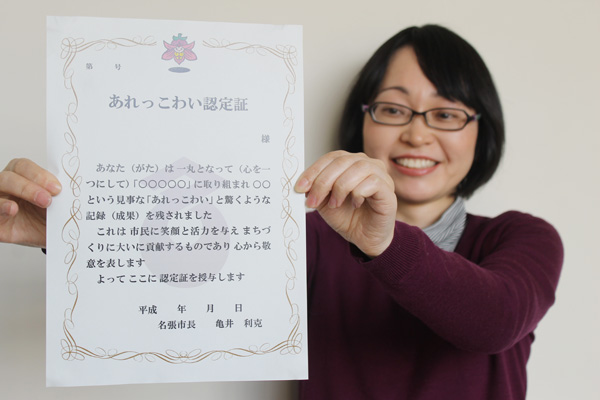 第　号
あれっこわい認定証
様
あなた（がた）は 一丸となって（心を一
つにして）「〇〇〇〇〇」に取り組まれ 〇〇
という見事な「あれっこわい」と驚くような
記録（成果）を残されました
これは 市民に笑顔と活力を与え まちづ
くりに大いに貢献するものであり 心から敬
意を表します
よって ここに 認定証を授与します
平成　年　月　日
名張市長　亀井　利克